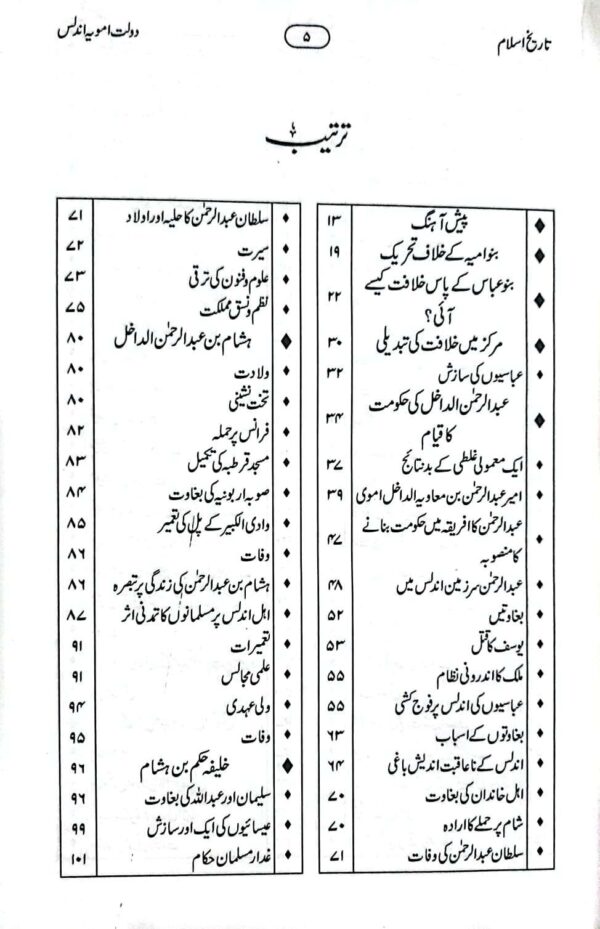 تاریخ اسلام ۵ دولت امویہ اندلس
ترتیب
♦ پیش آہنگ ۱۳
♦ بنو امیہ کے خلاف تحریک ۱۹
♦ بنو عباس کے پاس خلافت کیسے
آئی؟ ۲۲
♦ مرکز میں خلافت کی تبدیلی ۳۰
♦ عباسیوں کی سازش ۳۲
♦ عبدالرحمٰن الداخل کی حکومت
کا قیام ۳۴
♦ ایک معمولی غلطی کے بد نتائج ۳۷
♦ امیر عبدالرحمٰن بن معاویہ الداخل اموی ۳۹
♦ عبدالرحمٰن کا افریقہ میں حکومت بنانے
کا منصوبہ ۴۷
♦ عبدالرحمٰن سرزمین اندلس میں ۴۸
♦ بغاوتیں ۵۲
♦ یوسف کا قتل ۵۳
♦ ملک کا اندرونی نظام ۵۵
♦ عباسیوں کی اندلس پر فوج کشی ۵۵
♦ بغاوتوں کے اسباب ۶۳
♦ اندلس کے ناعاقبت اندیش باغی ۶۴
♦ اہل خاندان کی بغاوت ۷۰
♦ شام پر حملے کا ارادہ ۷۰
♦ سلطان عبدالرحمٰن کی وفات ۷۱
♦ سلطان عبدالرحمٰن کا حلیہ اور اولاد ۷۱
♦ سیرت ۷۲
♦ علوم و فنون کی ترقی ۷۳
♦ نظم و نسق مملکت ۷۵
♦ ہشام بن عبدالرحمٰن الداخل ۸۰
♦ ولادت ۸۰
♦ تخت نشینی ۸۰
♦ فرانس پر حملہ ۸۲
♦ مسجد قرطبہ کی تکمیل ۸۳
♦ صوبہ اربونیہ کی بغاوت ۸۴
♦ وادی الکبیر کے پل کی تعمیر ۸۵
♦ وفات ۸۶
♦ ہشام بن عبدالرحمٰن کی زندگی پر تبصرہ ۸۶
♦ اہل اندلس پر مسلمانوں کا تمدنی اثر ۸۷
♦ تعمیرات ۹۱
♦ علمی مجالس ۹۱
♦ ولی عہدی ۹۴
♦ وفات ۹۵
♦ خلیفہ حکم بن ہشام ۹۶
♦ سلیمان اور عبداللہ کی بغاوت ۹۶
♦ عیسائیوں کی ایک اور سازش ۹۹
♦ غدار مسلمان حکام ۱۰۱